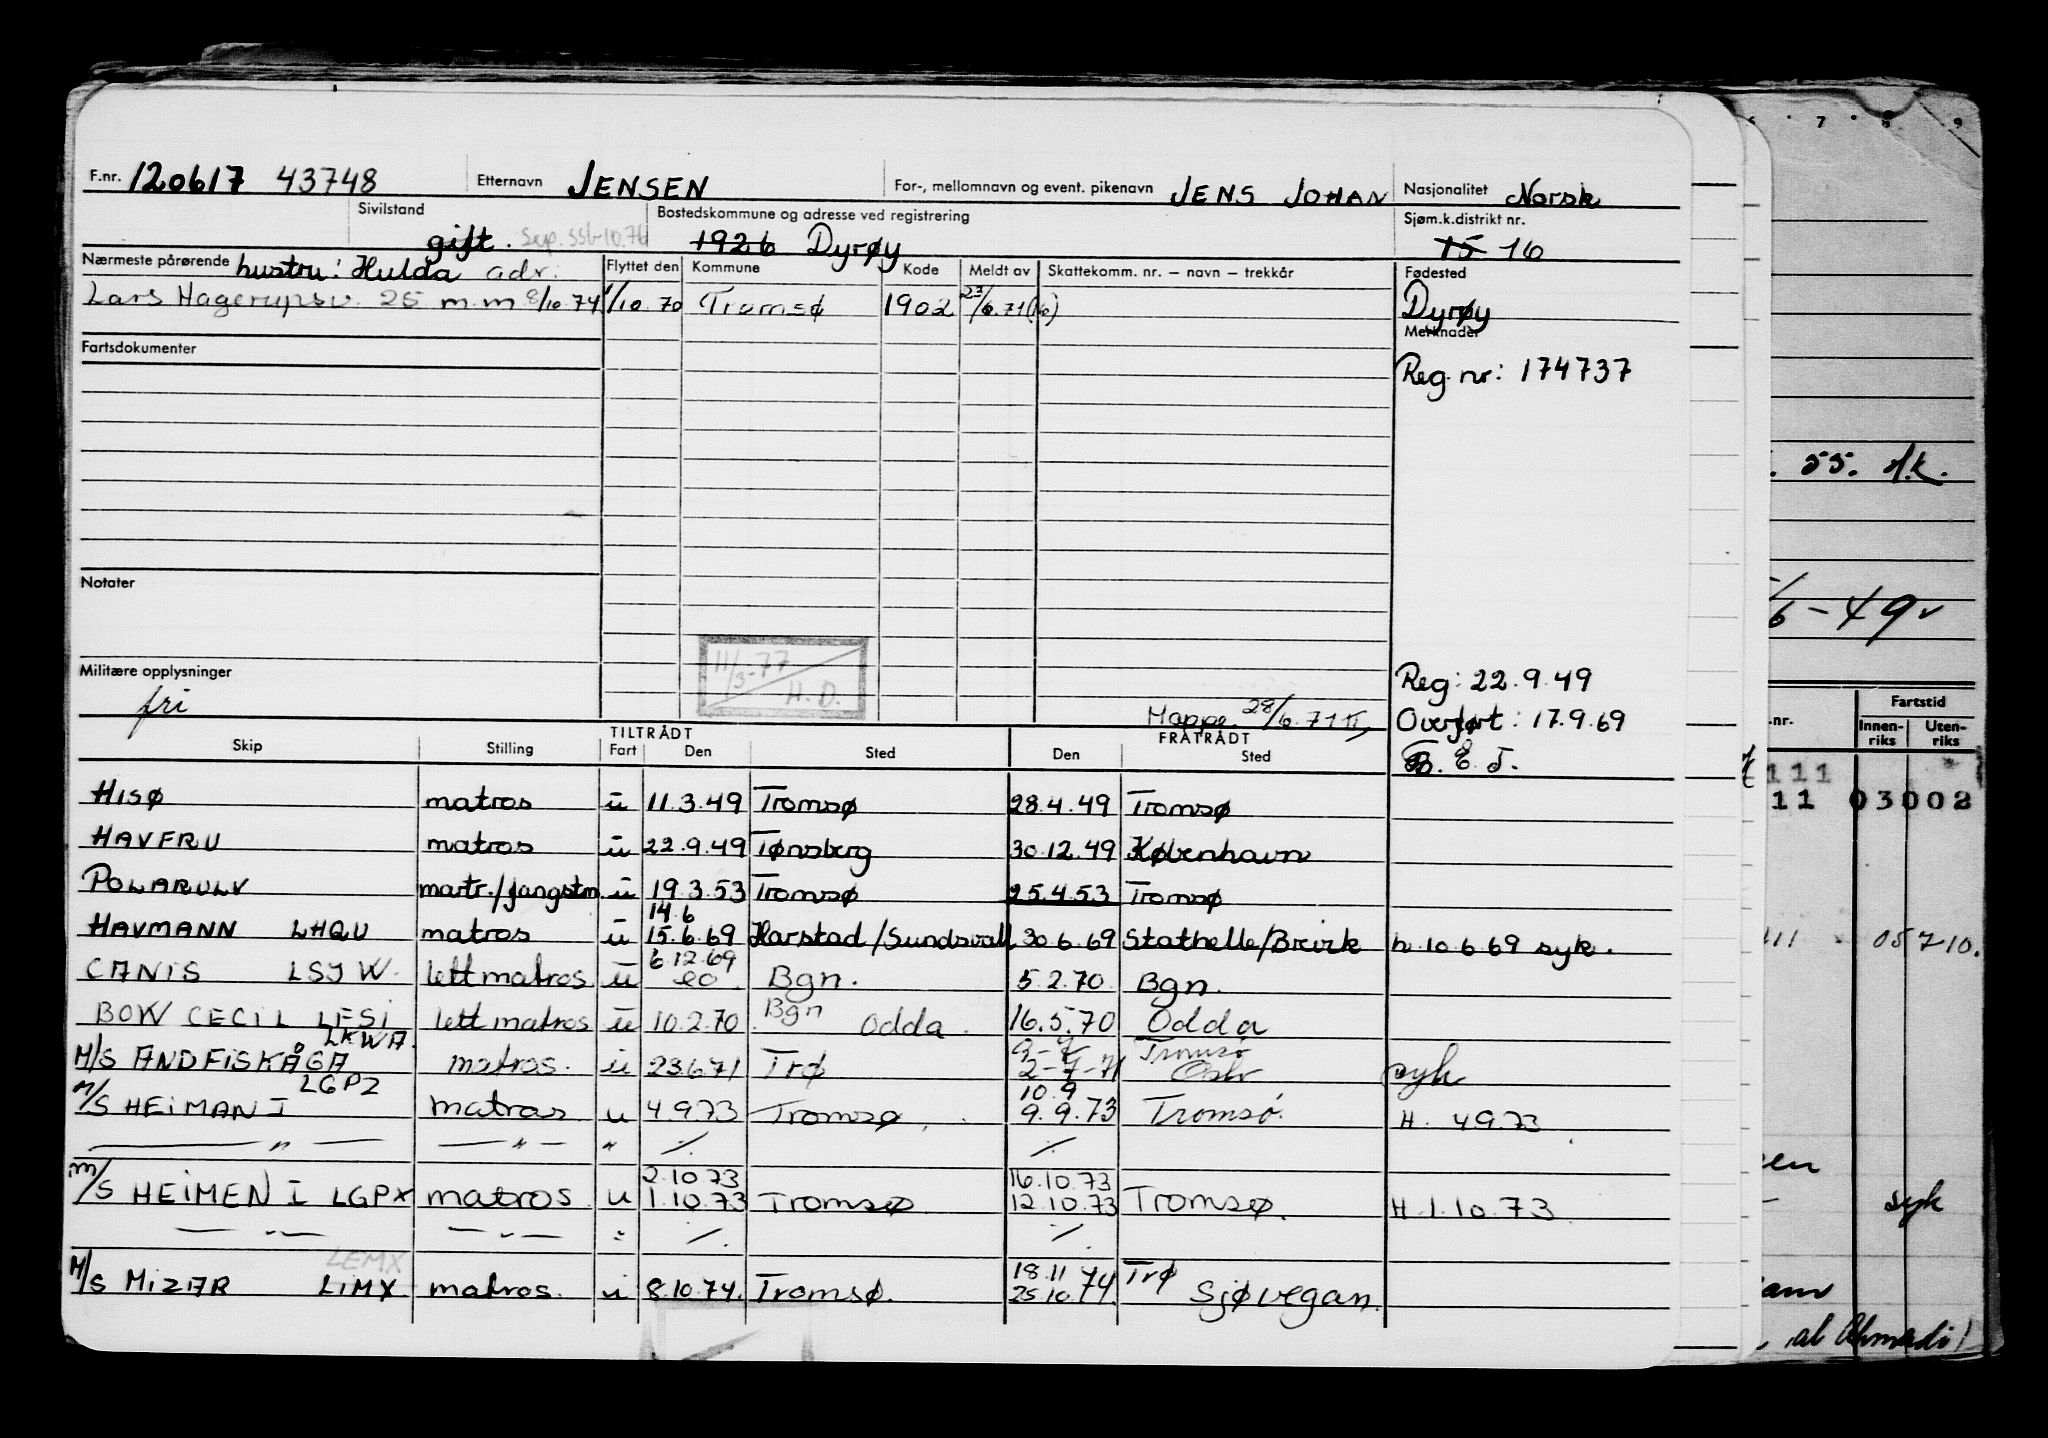 F.nr. 120617 43748 Etternavn JENSEN For-, mellomnavn og event. pikenavn JENS JOHAN Nasjonalitet Norsk
Sivilstand gift. Sep. Bostedskommune og adresse ved registrering 1926 Dyrøy Sjøm.k.distrikt nr. 15 16
Nærmeste pårørende hustru: Hulda adr. Flyttet den Kommune Kode Meldt av Skattekomm. nr. – navn – trekkår Fødested
Lars Hagerupsv. 25 m.m 8/10.74 1/10.70 Tromsø 1902 23/6.71 Dyrøy
Fartsdokumenter Merknader
Reg. nr: 174737
Notater
Militære opplysninger
fri
11/3-77
H.D.
Mappe 28/6.71
Reg: 22.9.49
Overført: 17.9.69
B. E. J.
TILTRÅDT FRATRÅDT
Skip Stilling Fart Den Sted Den Sted
HISØ matros u 11.3.49 Tromsø 28.4.49 Tromsø
HAVFRU matros u 22.9.49 Tønsberg 30.12.49 København
POLARULV martr./fangstm. u 19.3.53 Tromsø 25.4.53 Tromsø
14.6
HAVMANN LHQU matros u 15.6.69 Harstad/Sundsvall 30.6.69 Stathelle/Brevik h.10.6.69 syk.
6.12.69
CANIS LSJW. lettmatros u Bgn. 5.2.70 Bgn.
BOW CECIL LESI lettmatros u 10.2.70 Bgn Odda. 16.5.70 Odda
LKWA. Tromsø
M/S ANDFISKÅGA matros. u 23671 Trø 2-7-71 syk
LGPZ 10.9
M/S HEIMAN I matros u 4.9.73 Tromsø. 9.9.73 Tromsø. H. 4.9.73
— " — — " — " ./. ./.
2.10.73 16.10.73
M/S HEIMEN I LGPX matros u 1.10.73 Tromsø 12.10.73 Tromsø. H 1.10.73
— " — — " — " ./. ./.
LEMX 18.11 Trø
M/S MIZAR LIMX matros. u 8.10.74. Tromsø. 25.10.74. Sjøvegan.
7 8 9
. 55.
6-49
.nr. Fartstid
Innenriks Utenriks
111
11 03002
111 05710.
syk
, al Ahmadi!